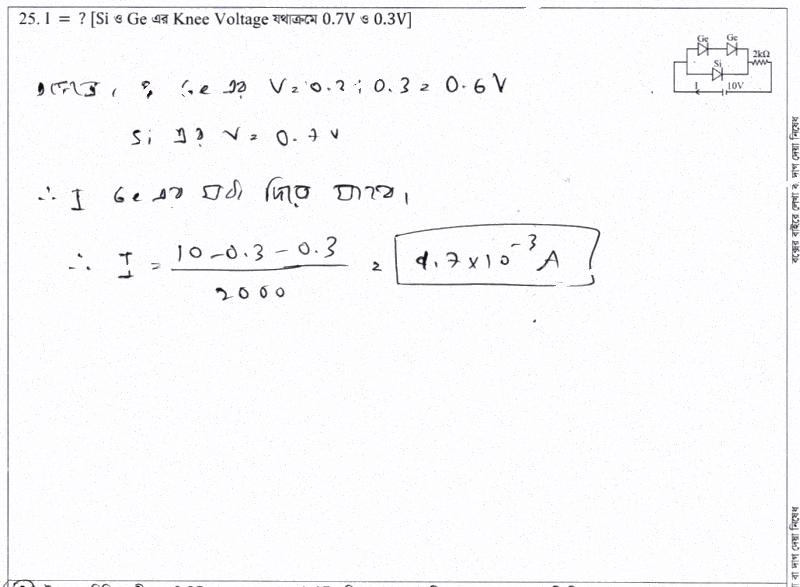 25. I = ? [Si ও Ge এর Knee Voltage যথাক্রমে 0.7V ও 0.3V]
Ge Ge
2kΩ
Si
I 10V
Ge এর V = 0.3 + 0.3 = 0.6 V
Si এর V = 0.7 V
∴ I Ge এর মধ্য দিয়ে যাবে।
∴ I = (10 - 0.3 - 0.3) / 2000 = 4.7 x 10^-3 A
বক্সের বাইরে লেখা বা দাগ দেয়া নিষেধ
বা দাগ দেয়া নিষেধ